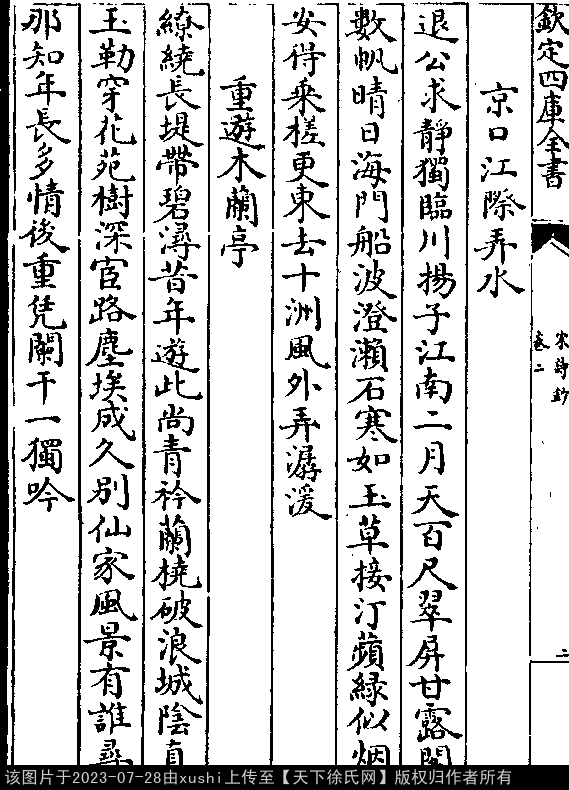 欽定四庫全書
宋詩鈔
卷二
二
京口江際弄水
退公求靜獨臨川揚子江南二月天百尺翠屏甘露閣
數帆晴日海門船波澄瀨石寒如玉草接汀蘋緑似烟
安得乘槎更東去十洲風外弄潺湲
重遊木蘭亭
繚繞長堤帶碧潯昔年遊此尚青衿蘭橈破浪城陰直
玉勒穿花苑樹深宦路塵埃成久别仙家風景有誰尋
那知年長多情後重凭闌干一獨吟
该图片于2023-07-28由xushi上传至【天下徐氏网】版权归作者所有